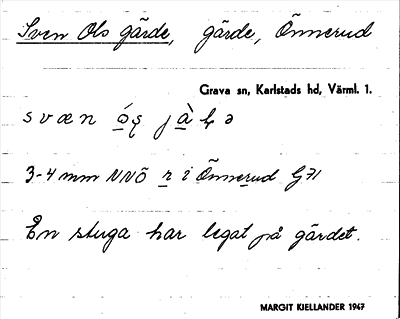 Sven Ols gärde, gärde, Önnerud
Grava sn, Karlstads hd, Värml. 1.
svæn
3-4 mm NNÖ r i Önnerud G71
En stuga har legat på gärdet.
MARGIT KIELLANDER 1947